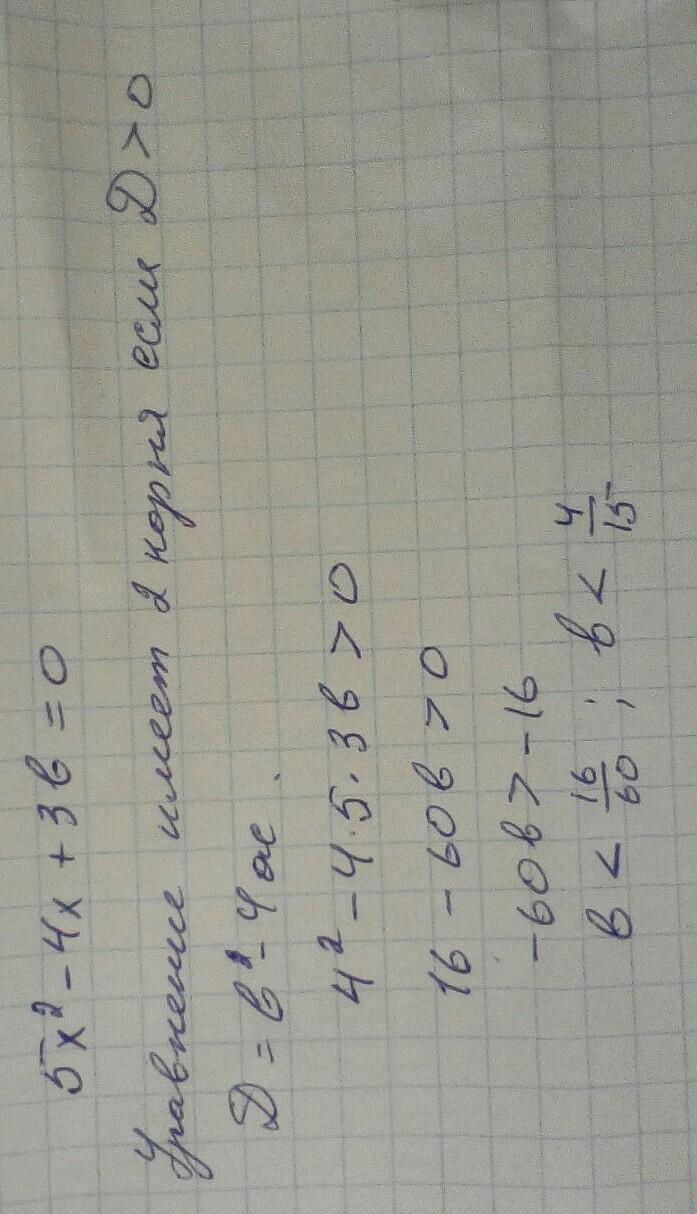 5x² - 4x + 3в = 0
Уравнение имеет 2 корня если D > 0
D = в² - 4ac.
4² - 4·5·3в > 0
16 - 60в > 0
-60в > -16
в < 16/60 ; в < 4/15